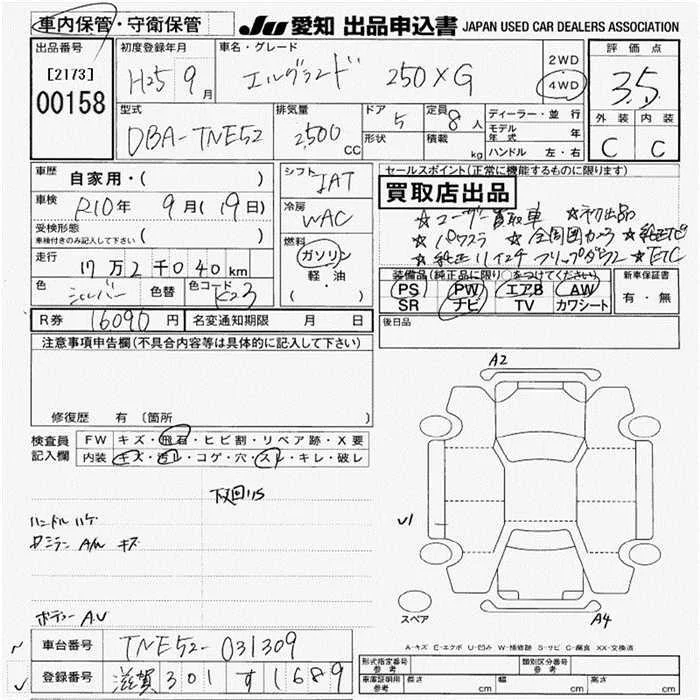 車内保管・守衛保管
JU 愛知 出品申込書 JAPAN USED CAR DEALERS ASSOCIATION
出品番号 [2173] 00158
初度登録年月 H25 9月
車名・グレード エルグランド 250XG
2WD
4WD
評価点 3.5
外装 C 内装 C
型式 DBA-TNE52
排気量 2500 CC
ドア 5
形状
定員 8人
積載 kg
ディーラー・並行
モデル年式 年
ハンドル 左・右
車歴 自家用・( )
シフト IAT
セールスポイント(正常に機能するものに限ります)
買取店出品
☆ユーザー買取車 ☆初出品
☆パワスラ ☆全周囲カメラ ☆純正ナビ
☆純正11インチフリップダウン ☆ETC
車検 R10年 9月(19日)
冷房 WAC
受検形態
車検付きのみ記入して下さい ( )
燃料 ガソリン
軽・油
( )
走行 17万2千040km
色 シルバー 色替 色コード K23
装備品(純正品に限り○をつけてください)
PS PW エアB AW
SR ナビ TV カワシート
新車保証書
有・無
R券 16090円 名変通知期限 月 日
後日品
注意事項申告欄(不具合内容等は具体的に記入して下さい)
修復歴 有 〔箇所 〕
検査員記入欄
FW キズ・飛石・ヒビ割・リペア跡・X要
内装 キズ・汚レ・コゲ・穴・スレ・キレ・破レ
下廻りS
ハンドルハゲ
ボディー A.U
A2
U1
A4
スペア
A-キズ E-エクボ U-凹み W-補修跡 S-サビ C-腐食 XX-交換済
車台番号 TNE52-031309
登録番号 滋賀 301 す 1689
形式指定番号 参考
類別区分番号 参考
車庫証明用 参考 長さ cm 幅 cm 高さ cm